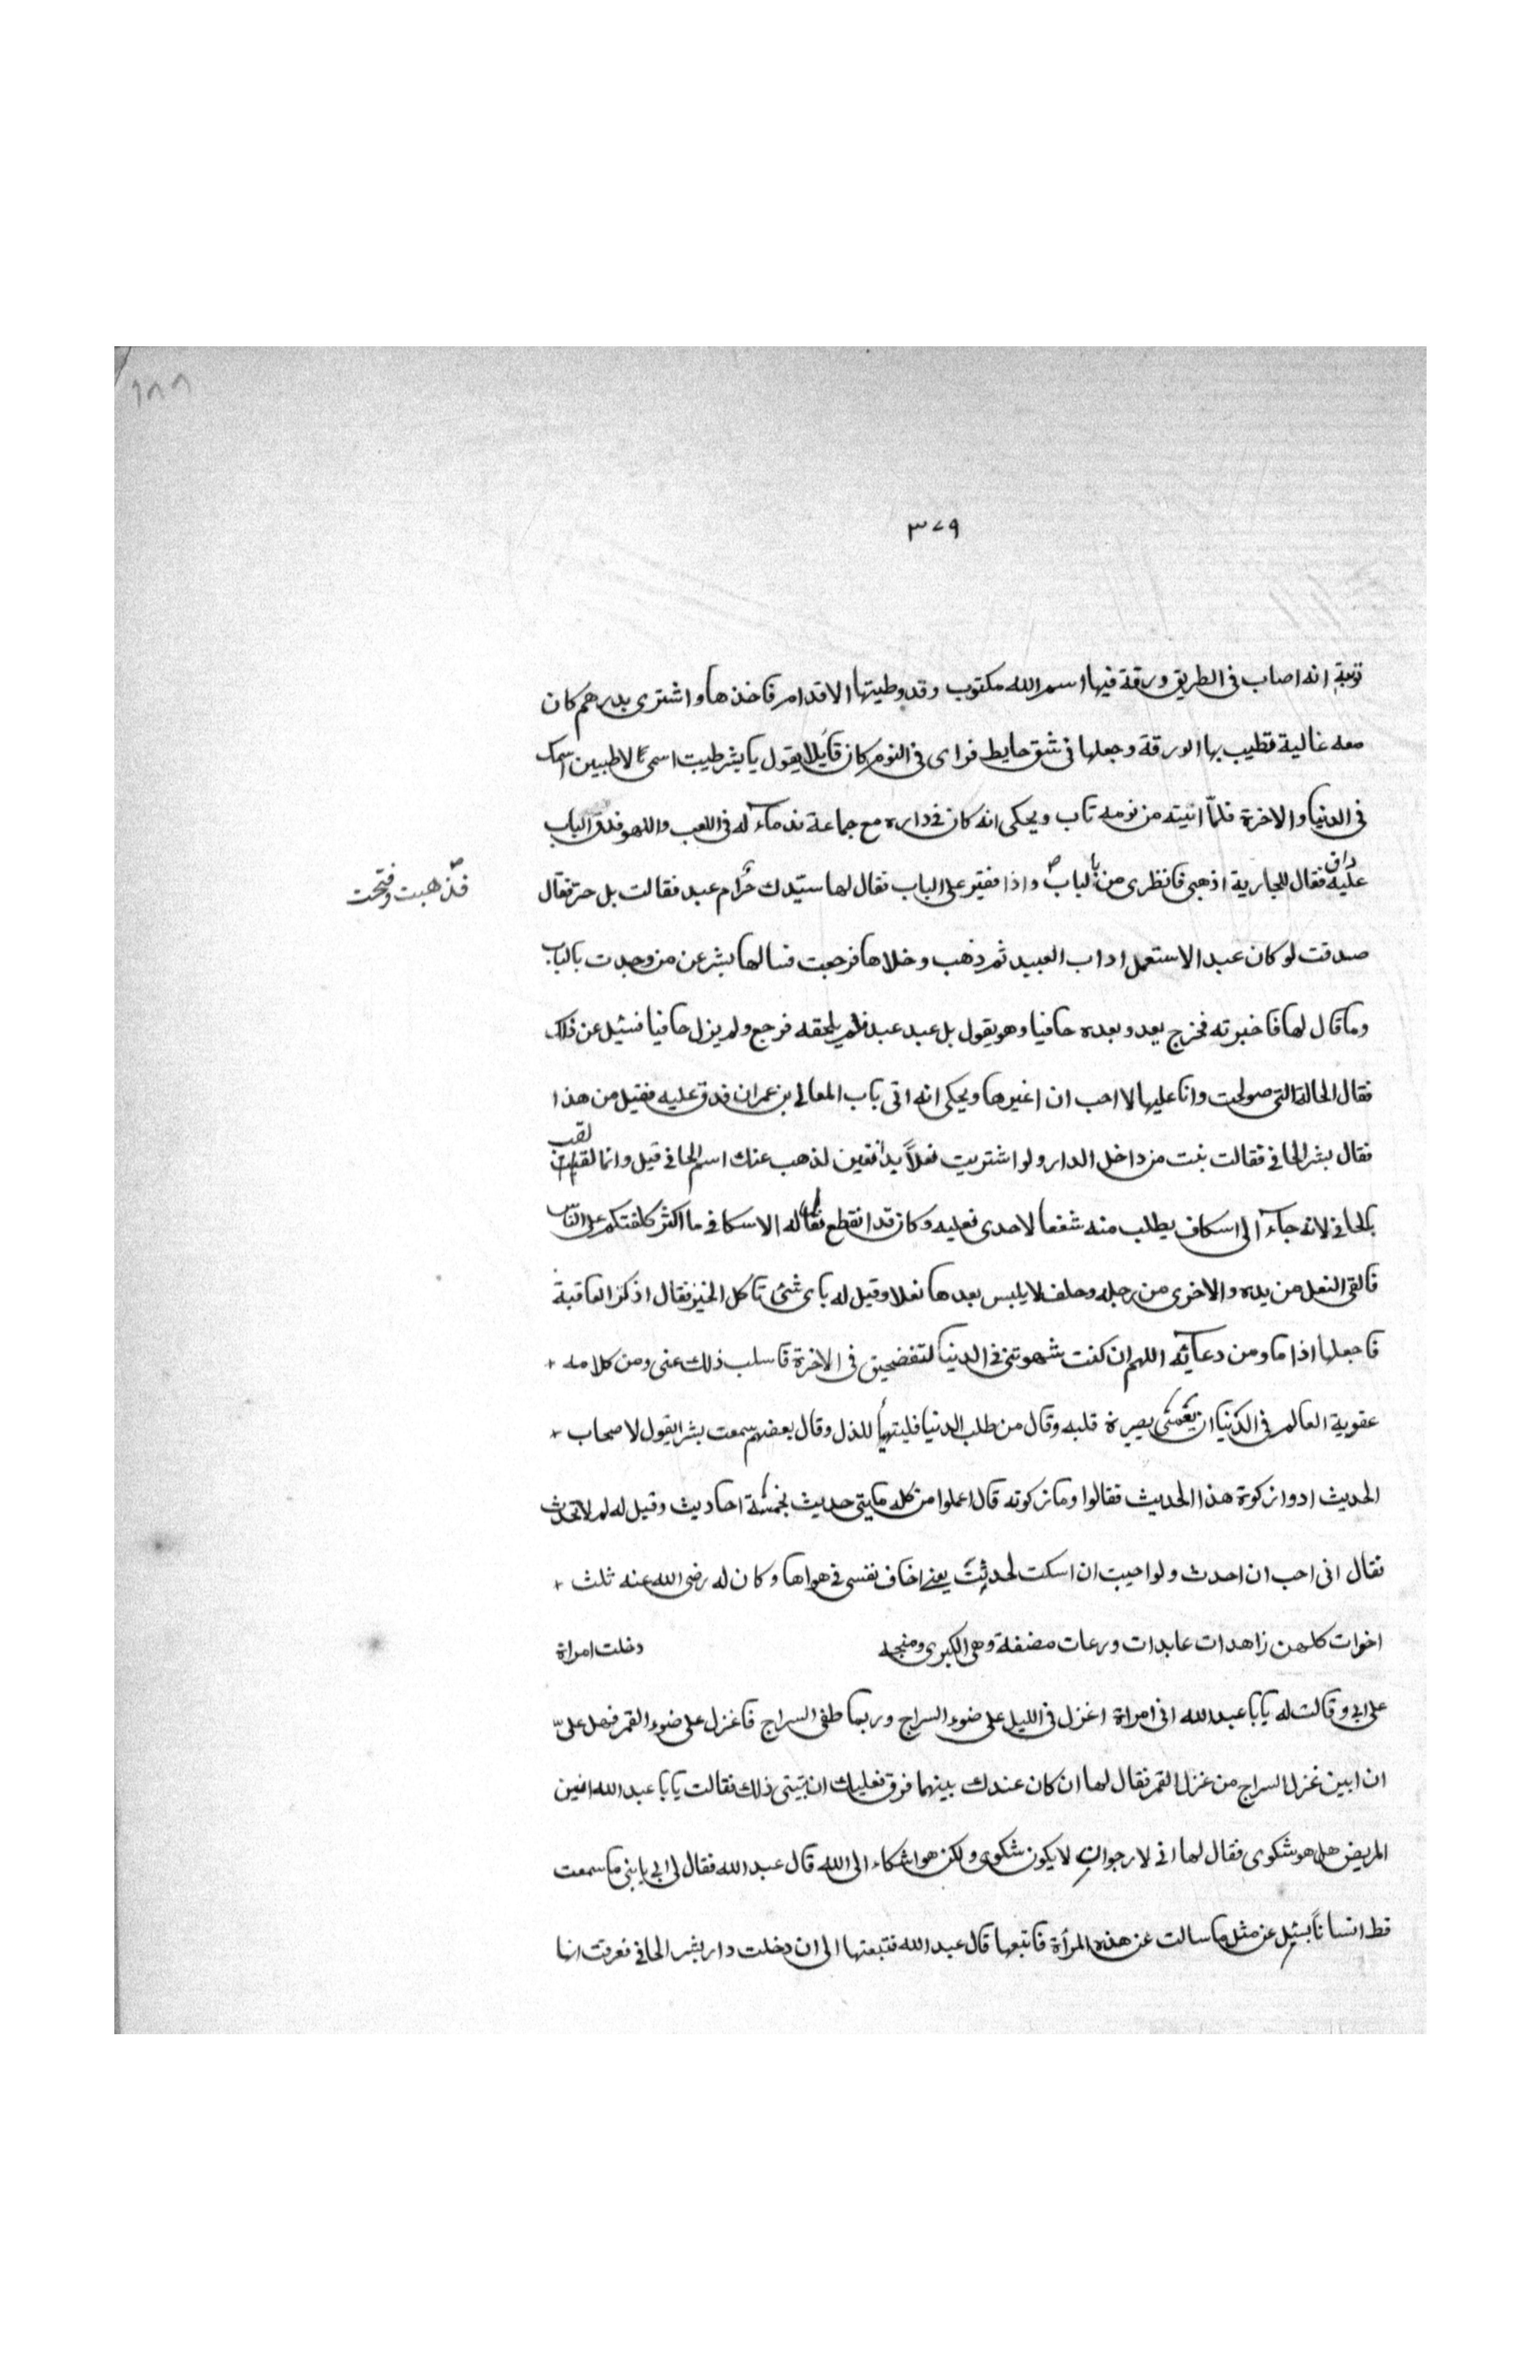 ١٨٨
٣٧٩
توبته انه اصاب فى الطريق ورقة فيها اسم الله مكتوب وقد وطيتها الاقدام فاخذها واشترى بدرهم كان
معه غالية فطيب بها الورقة وجعلها فى شق حايط فراى فى النوم كان قايلا يقول يا بشر طيبت اسمى لاطيبن اسمك
فى الدنيا والاخرة فلمّا انتبه من نومه تاب ويحكى انه كان فى داره مع جماعة ندمآء له فى اللعب واللهو فدق الباب
عليه داق فقال للجارية اذهبى فانظرى من بالباب واذا فقير على الباب فقال لها سيّدك حرّ ام عبد فقالت بل حر فقال
فذهبت وفتحت
صدقت لو كان عبدا لاستعمل اداب العبيد ثم ذهب وخلاها فرجعت فسالها بشر عن من وجدت بالباب
وما قال لها فاخبرته فخرج يعدو بعده حافيا وهو يقول بل عبد عبد فلم يلحقه فرجع ولم يزل حافيا فسئل عن ذلك
فقال الحالة التى صولحت وانا عليها لا احب ان اغيرها ويحكى انه اتى باب المعافى بن عمران فدق عليه فقيل من هذا
فقال بشر الحافى فقالت بنت من داخل الدار ولو اشتريت نعلاً بدانقين لذهب عنك اسم الحافى قيل وانما لقب
بالحافى لانه جآء الى اسكاف يطلب منه شسعا لاحدى نعليه وكان قد انقطع فقال له الاسكاف ما اكثر كلفتكم على النّاس
فالقى النعل من يده والاخرى من رجله وحلف لا يلبس بعدها نعلا وقيل له باى شئ تاكل الخبز فقال اذكر العاقبة
فاجعلها اداما ومن دعآئه اللهم ان كنت شهرتنى فى الدنيا لتفضحنى فى الاخرة فاسلب ذلك عنى ومن كلامه +
عقوبة العالم فى الدّنيا ان يعمى بصيرة قلبه وقال من طلب الدنيا فليتهيأ للذل وقال بعضهم سمعت بشرا يقول لاصحاب +
الحديث ادوا زكوة هذا الحديث فقالوا وما زكوته قال اعملوا من كل مايتى حديث بخمسة احاديث وقيل له لم لا تحدث
فقال انى احب ان احدث ولو احببت ان اسكت لحدثت يعنى اخاف نفسى فى هواها وكان له رضى الله عنه ثلث +
اخوات كلهن زاهدات عابدات ورعات مضغة وهى الكبرى ومنجه دخلت امراة
على ابى وقالت له يابا عبد الله انى امراة اغزل فى الليل على ضوء السراج وربما طفى السراج فاغزل على ضوء القمر فهل علىّ
ان ابين غزل السراج من غزل القمر فقال لها ان كان عندك بينهما فرق فعليك ان تبينى ذلك فقالت يابا عبد الله انين
المريض هل هو شكوى فقال لها انى لارجو ان لا يكون شكوى ولكن هو اشكاء الى الله قال عبد الله فقال لى ابى يا بنى ما سمعت
قط انساناً يسئل عن مثل ما سالت عن هذه المرأة فاتبعها قال عبد الله فتبعتها الى ان دخلت دار بشر الحافى فعرفت انها